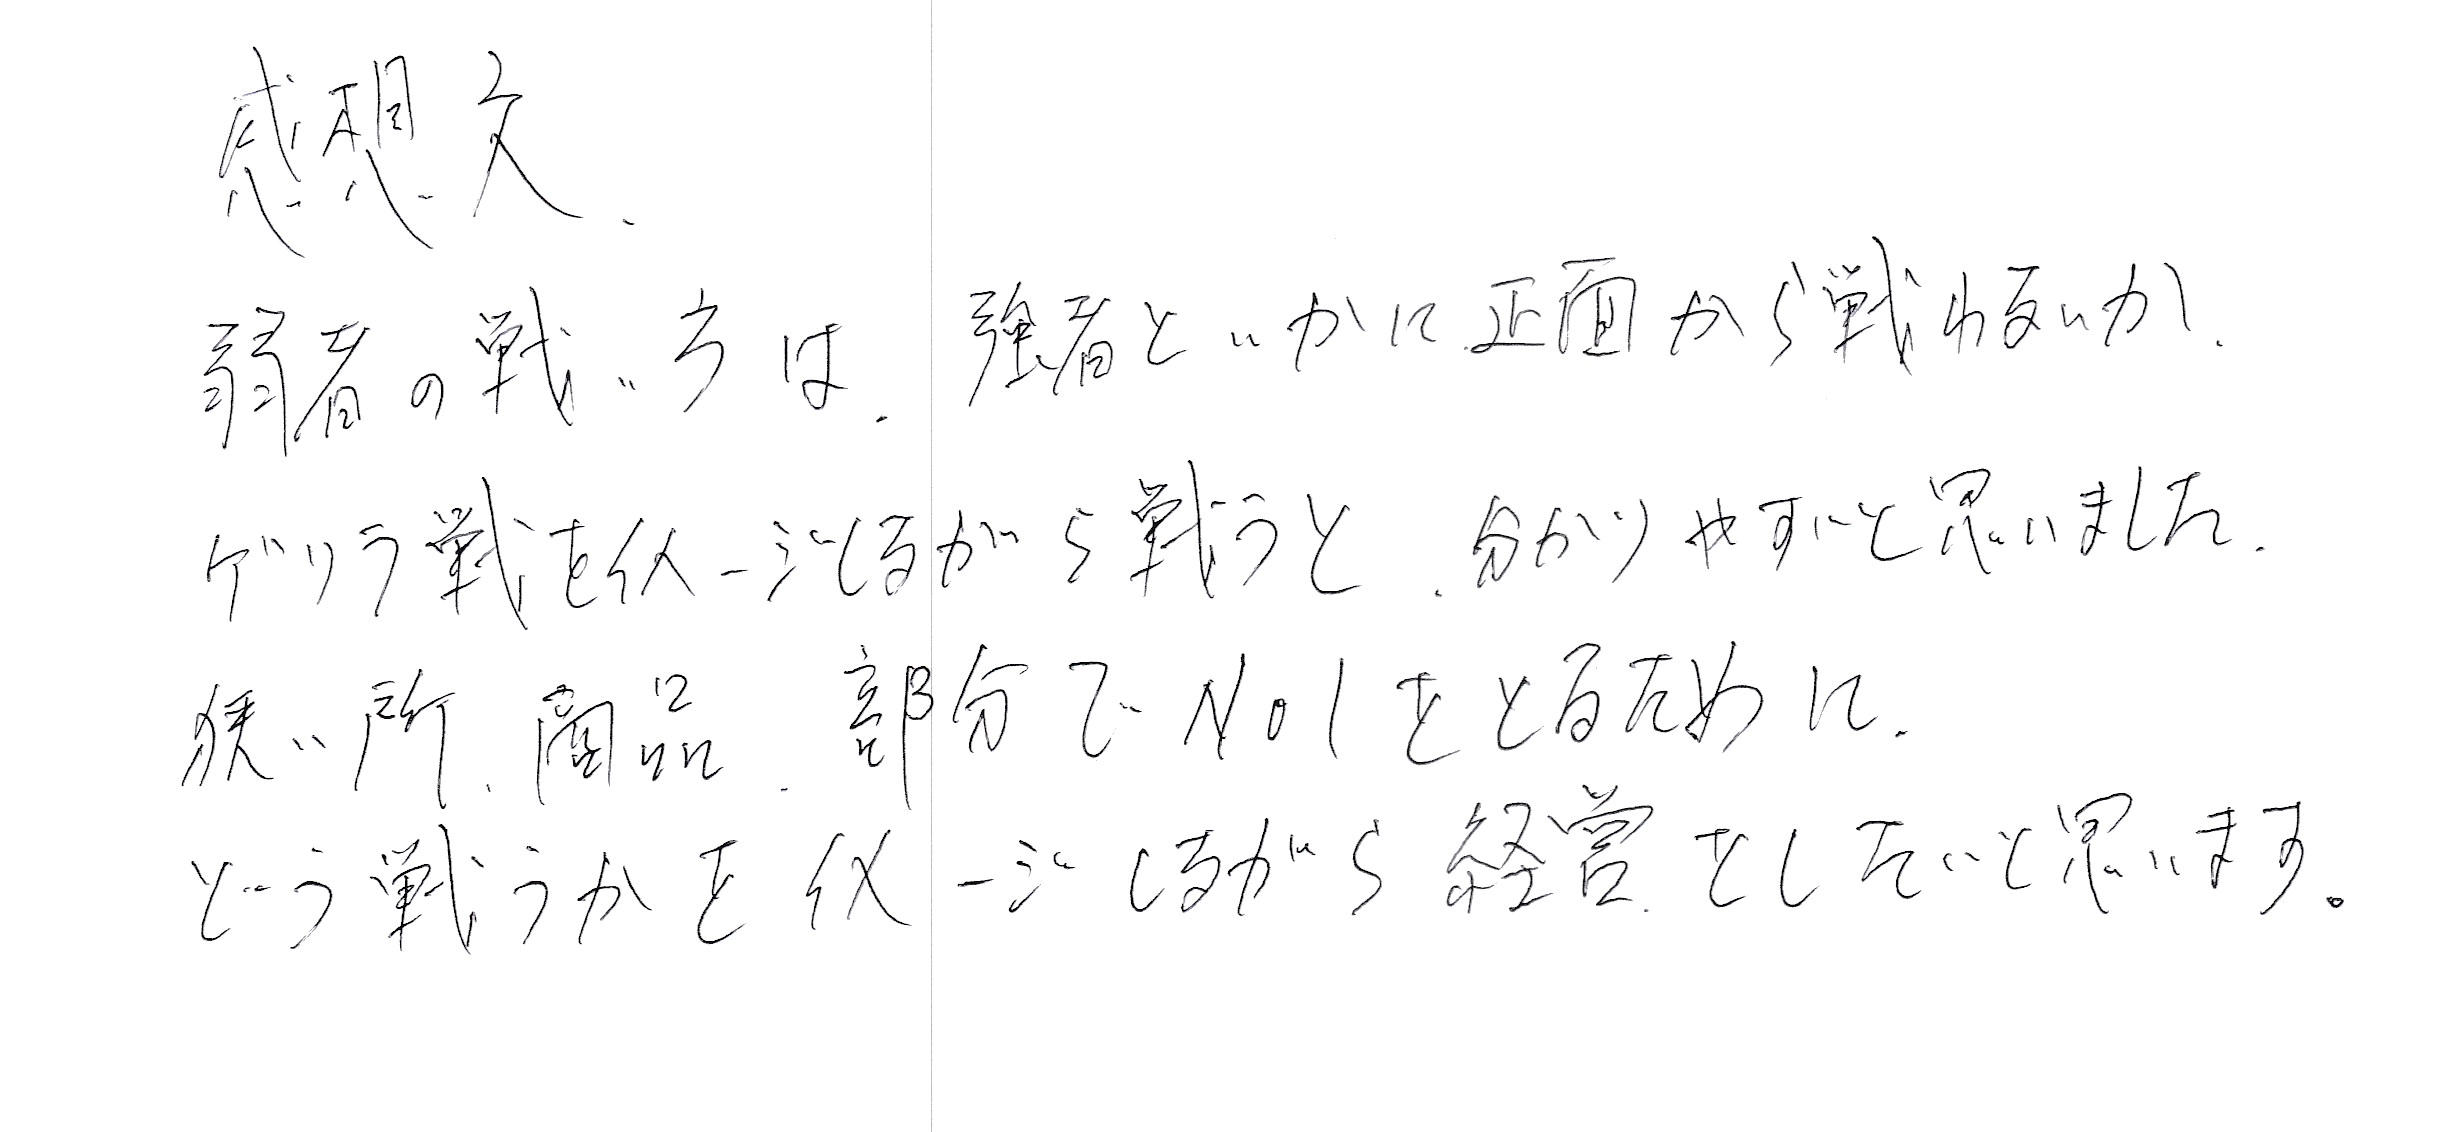 感想文、
弱者の戦い方は、強者といかに正面から戦わないか、
ゲリラ戦をイメージしながら戦うと、分かりやすいと思いました。
狭い所、商品、部分でNo1をとるために、
どう戦うかをイメージしながら経営をしたいと思います。